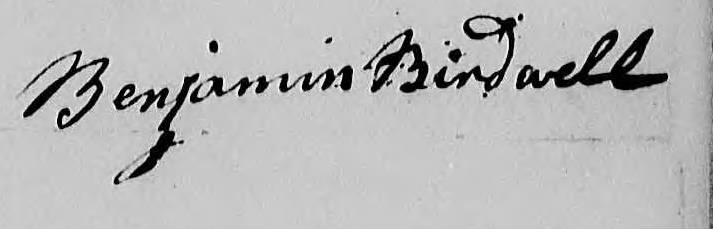 Benjamin Birdwell